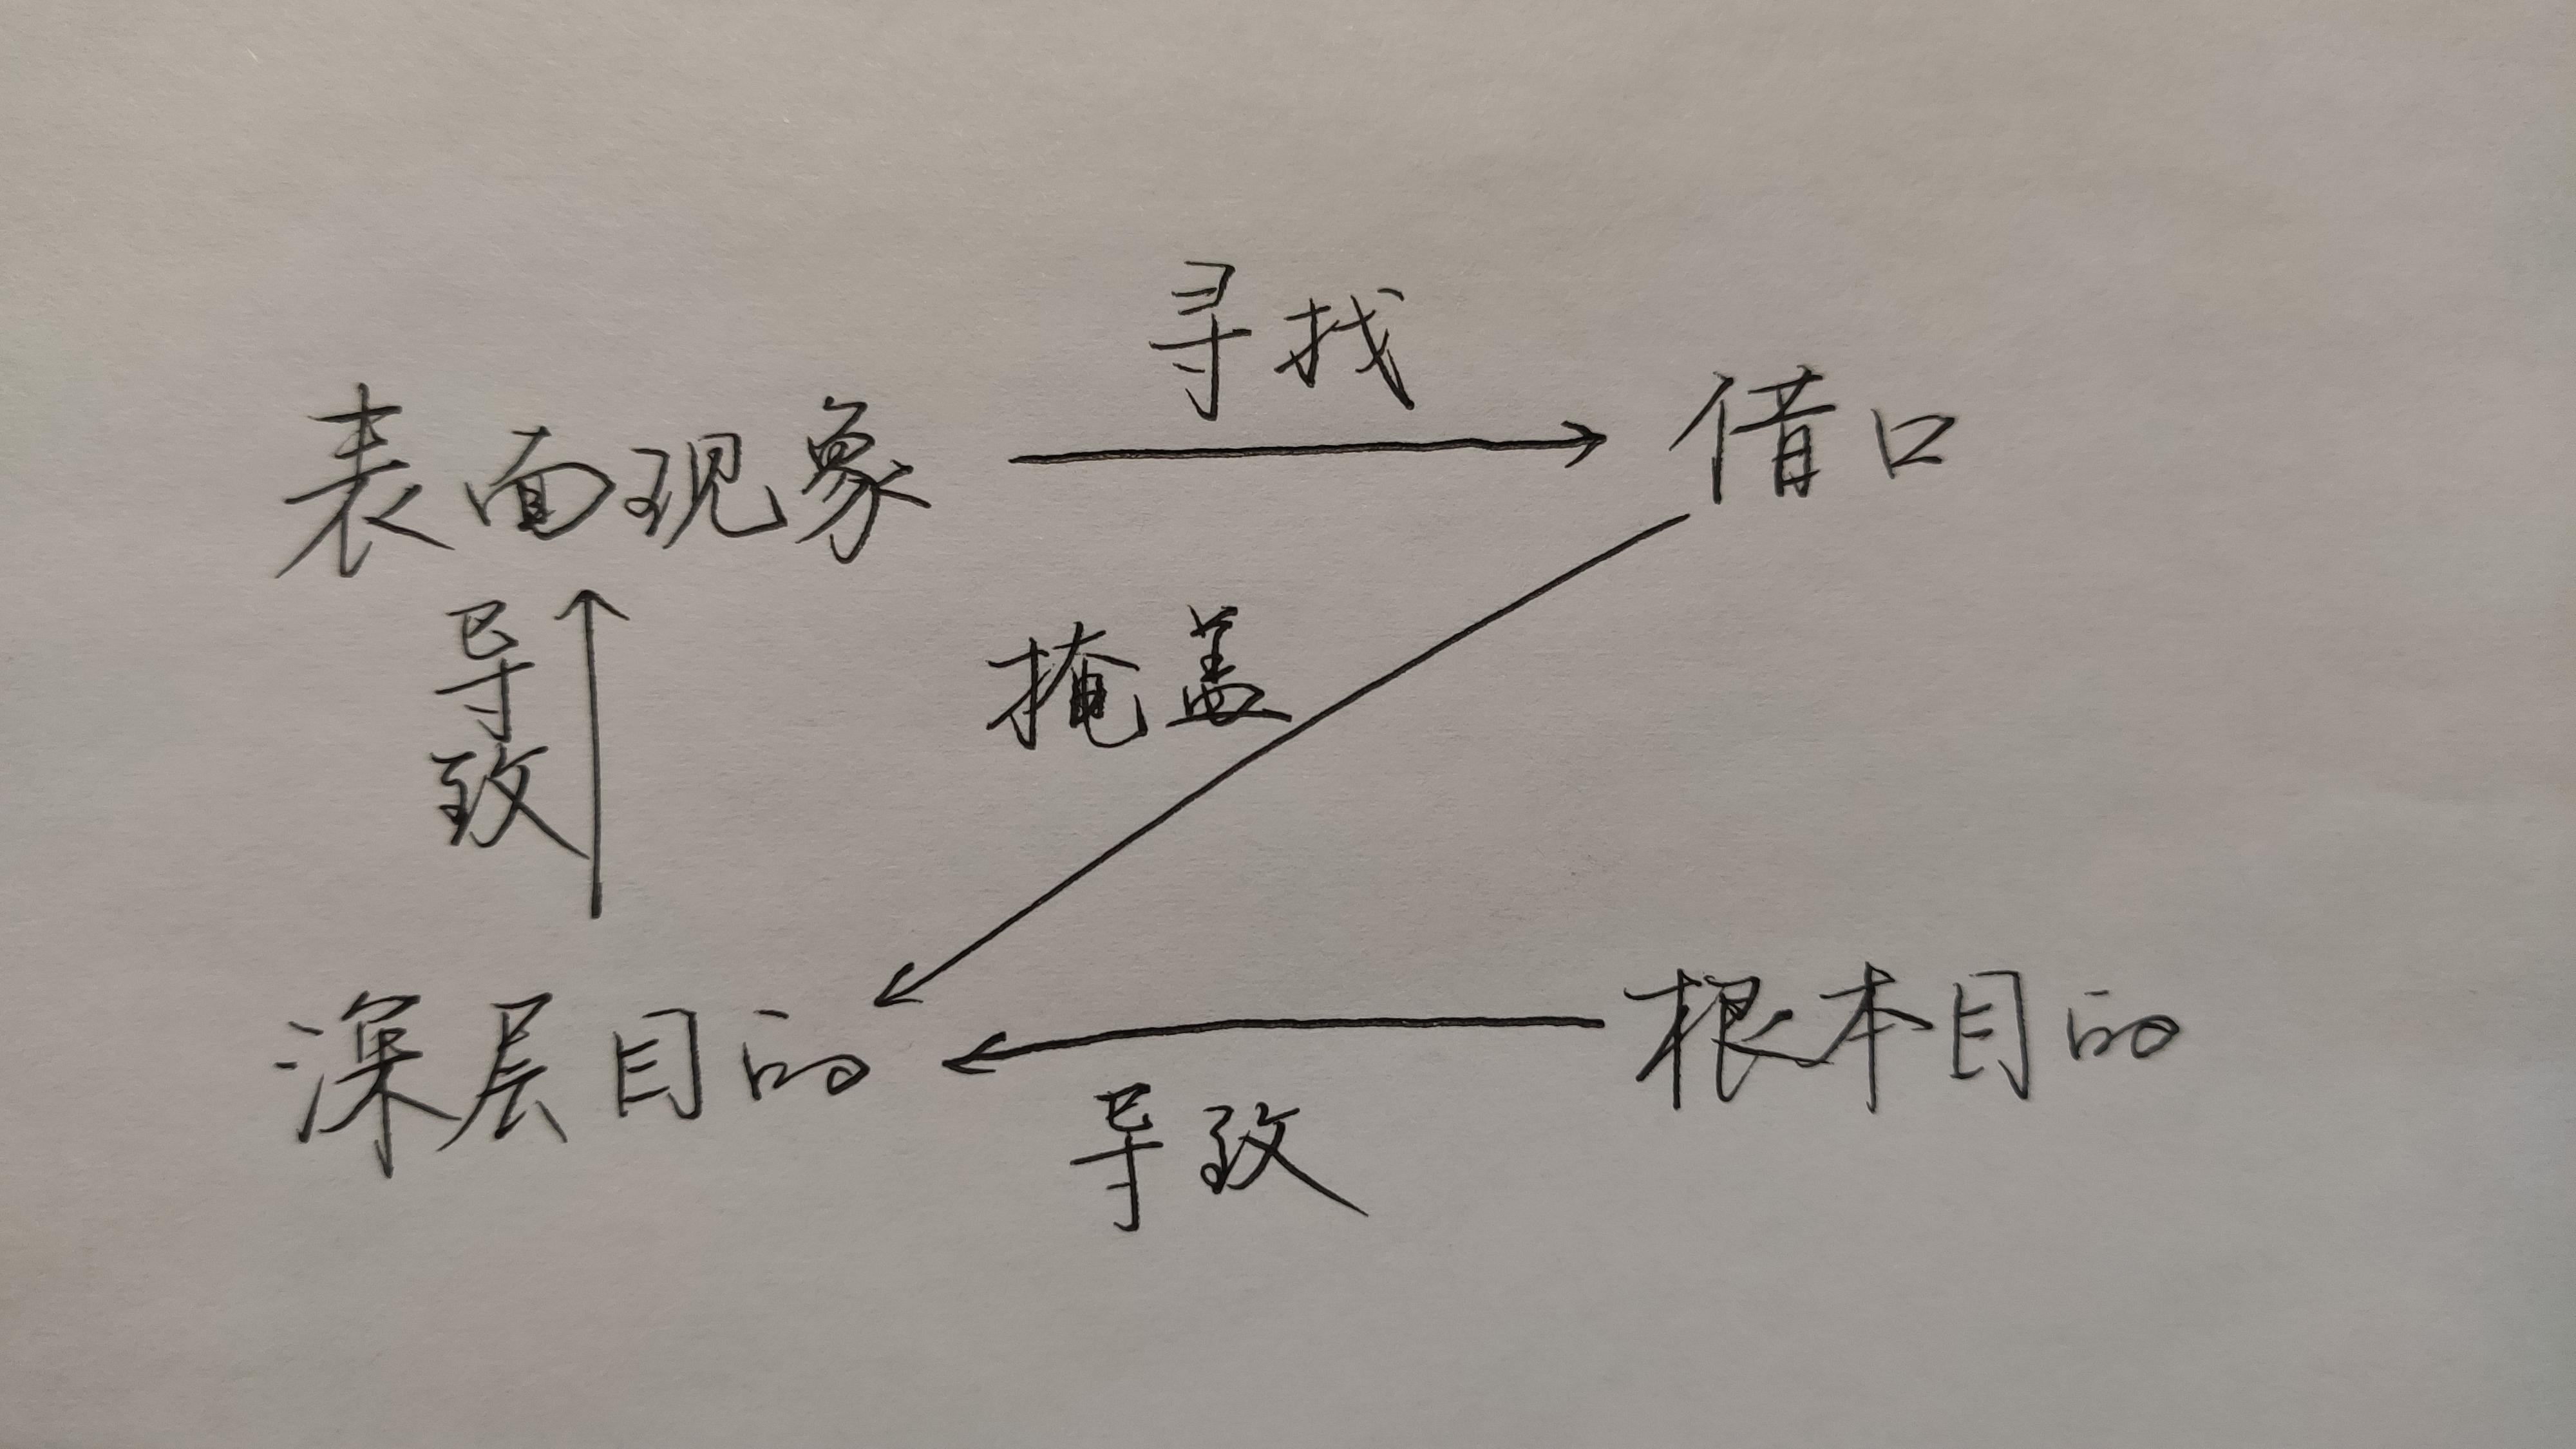 寻找
表面现象
借口
导致
掩盖
深层目的
根本目的
导致